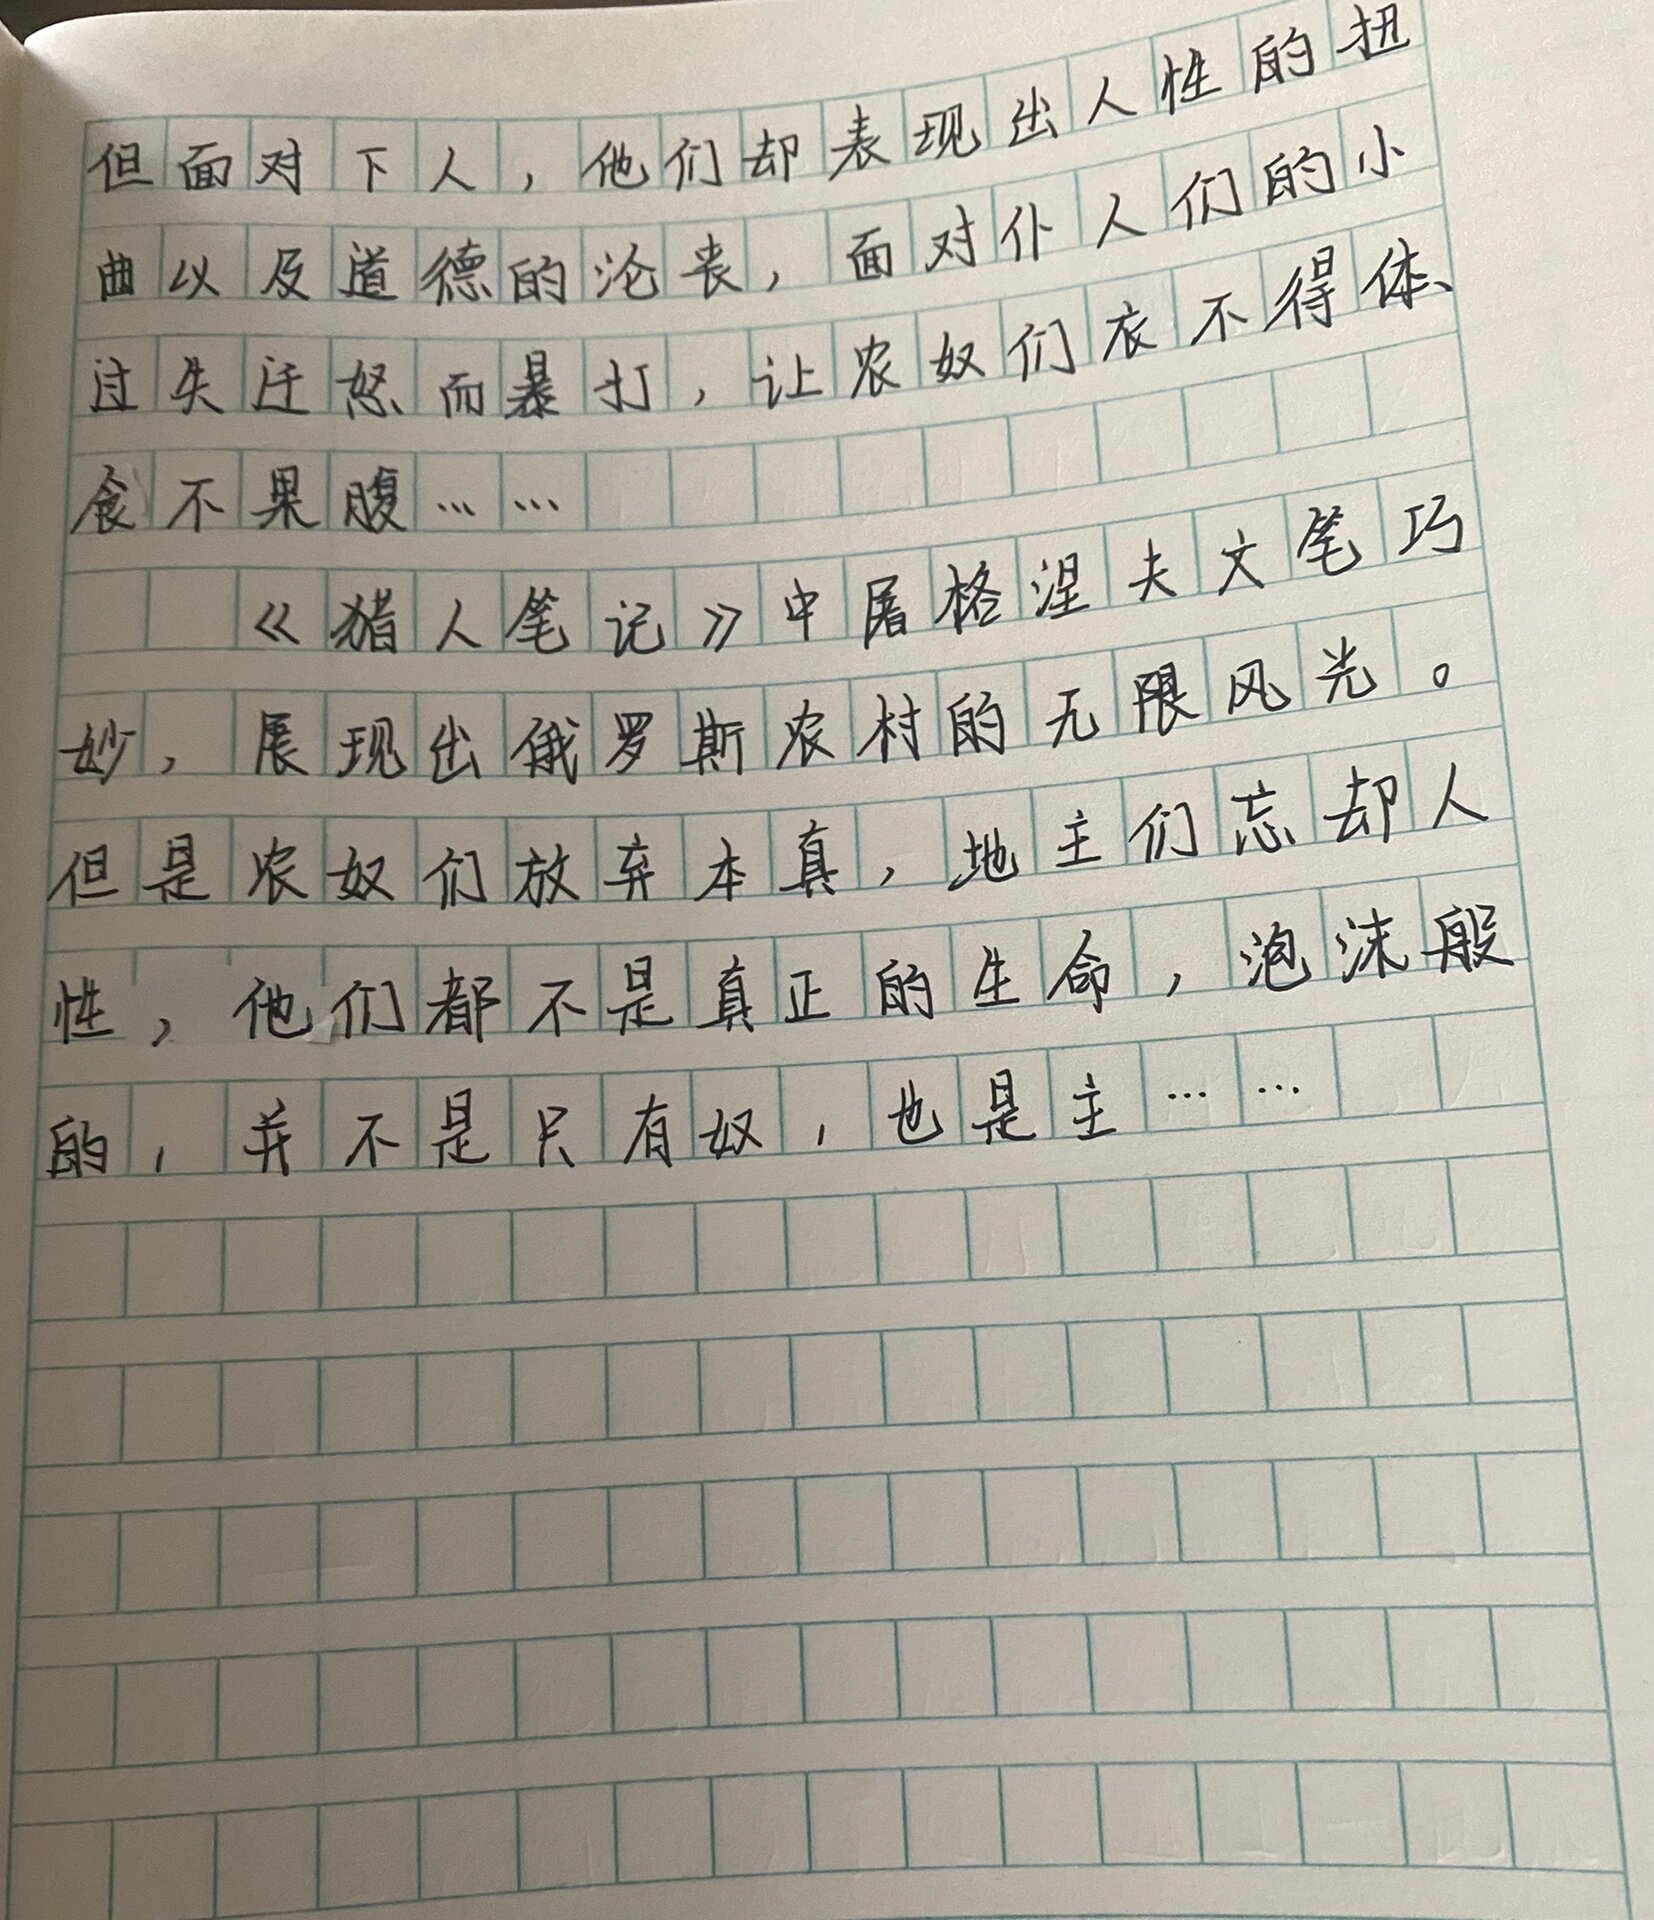 但面对下人，他们却表现出人性的扭
曲以及道德的沦丧，面对仆人们的小
过失迁怒而暴打，让农奴们衣不得体、
食不果腹……
《猎人笔记》中屠格涅夫文笔巧
妙，展现出俄罗斯农村的无限风光。
但是农奴们放弃本真，地主们忘却人
性，他们都不是真正的生命，泡沫般
的，并不是只有奴，也是主……